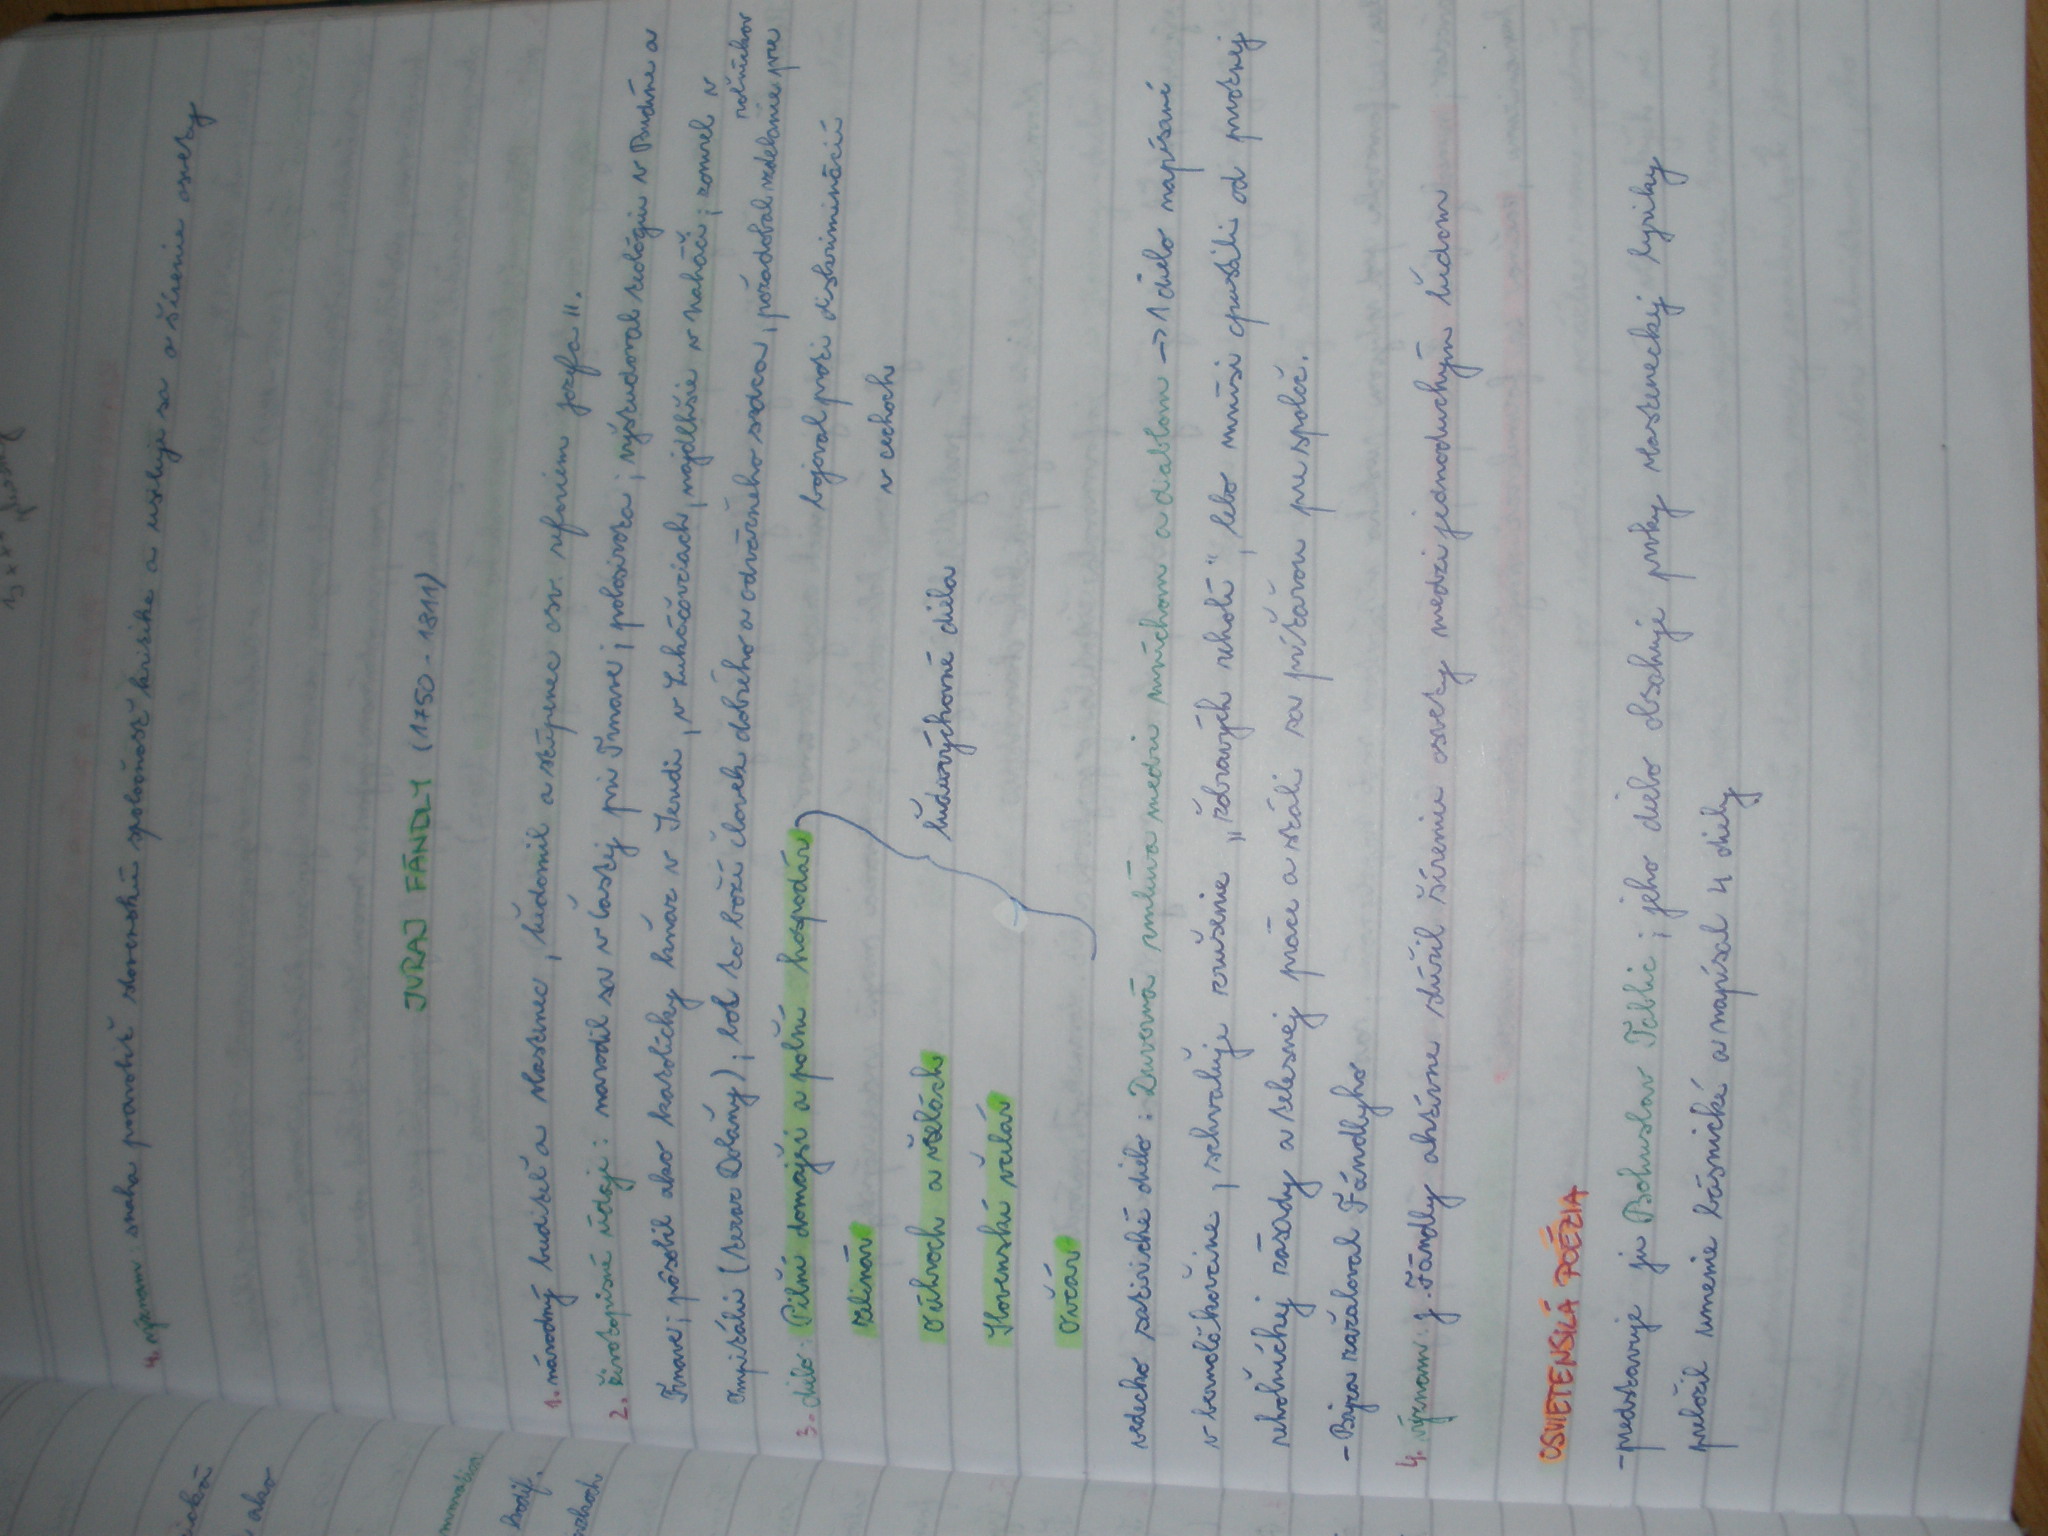 4. význam: snaha povzniesť slovenskú spoločnosť kritike a usiluje sa o šírenie osvety
JURAJ FÁNDLY (1750 - 1811)
1. národný buditeľ a vlastenec, ľudomil a stúpenec osv. reforiem Jozefa II.
2. životopisné údaje: narodil sa v Častej pri Trnave; polosirota; vyštudoval teológiu v Budíne a
Trnave; pôsobil ako katolícky kňaz v Seredi, v Lukáčovciach, najdlhšie v Naháči; zomrel v
Ompitáli (teraz Doľany); bol to boží človek dobrého a odvážneho srdca, požadoval vzdelanie pre
roľníkov
bojoval proti diskriminácii
v cechoch
3. dielo: Pilní domajší a poľní hospodár
Zelinár
O úhroch a včelách
Slovenskí včelár
Ovčár
ľudovýchovné diela
vedecko satirické dielo: Duverná zmlúva medzi mníchom a diablom -> 1 dielo napísané
v bernolákovčine, schvaľuje zrušenie "žobravých reholí", lebo mnísi opustili od pôvodnej
rehoľníckej zásady a telesnej práce a stáli sa príťažou pre spoloč.
- Bajza zažaloval Fándlyho
4. význam: J. Fándly aktívne slúžil šíreniu osvety medzi jednoduchým ľudom
OSVIETENSKÁ POÉZIA
- predstavuje ju Bohuslav Tablic; jeho dielo obsahuje prvky vlasteneckej lyriky
preložil umenie básnické a napísal 4 diely